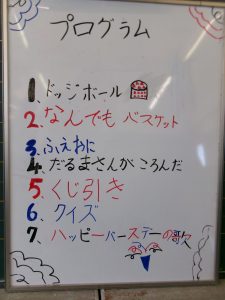 プログラム
1、ドッジボール
2、なんでもバスケット
3、ふえおに
4、だるまさんがころんだ
5、くじ引き
6、クイズ
7、ハッピーバースデーの歌